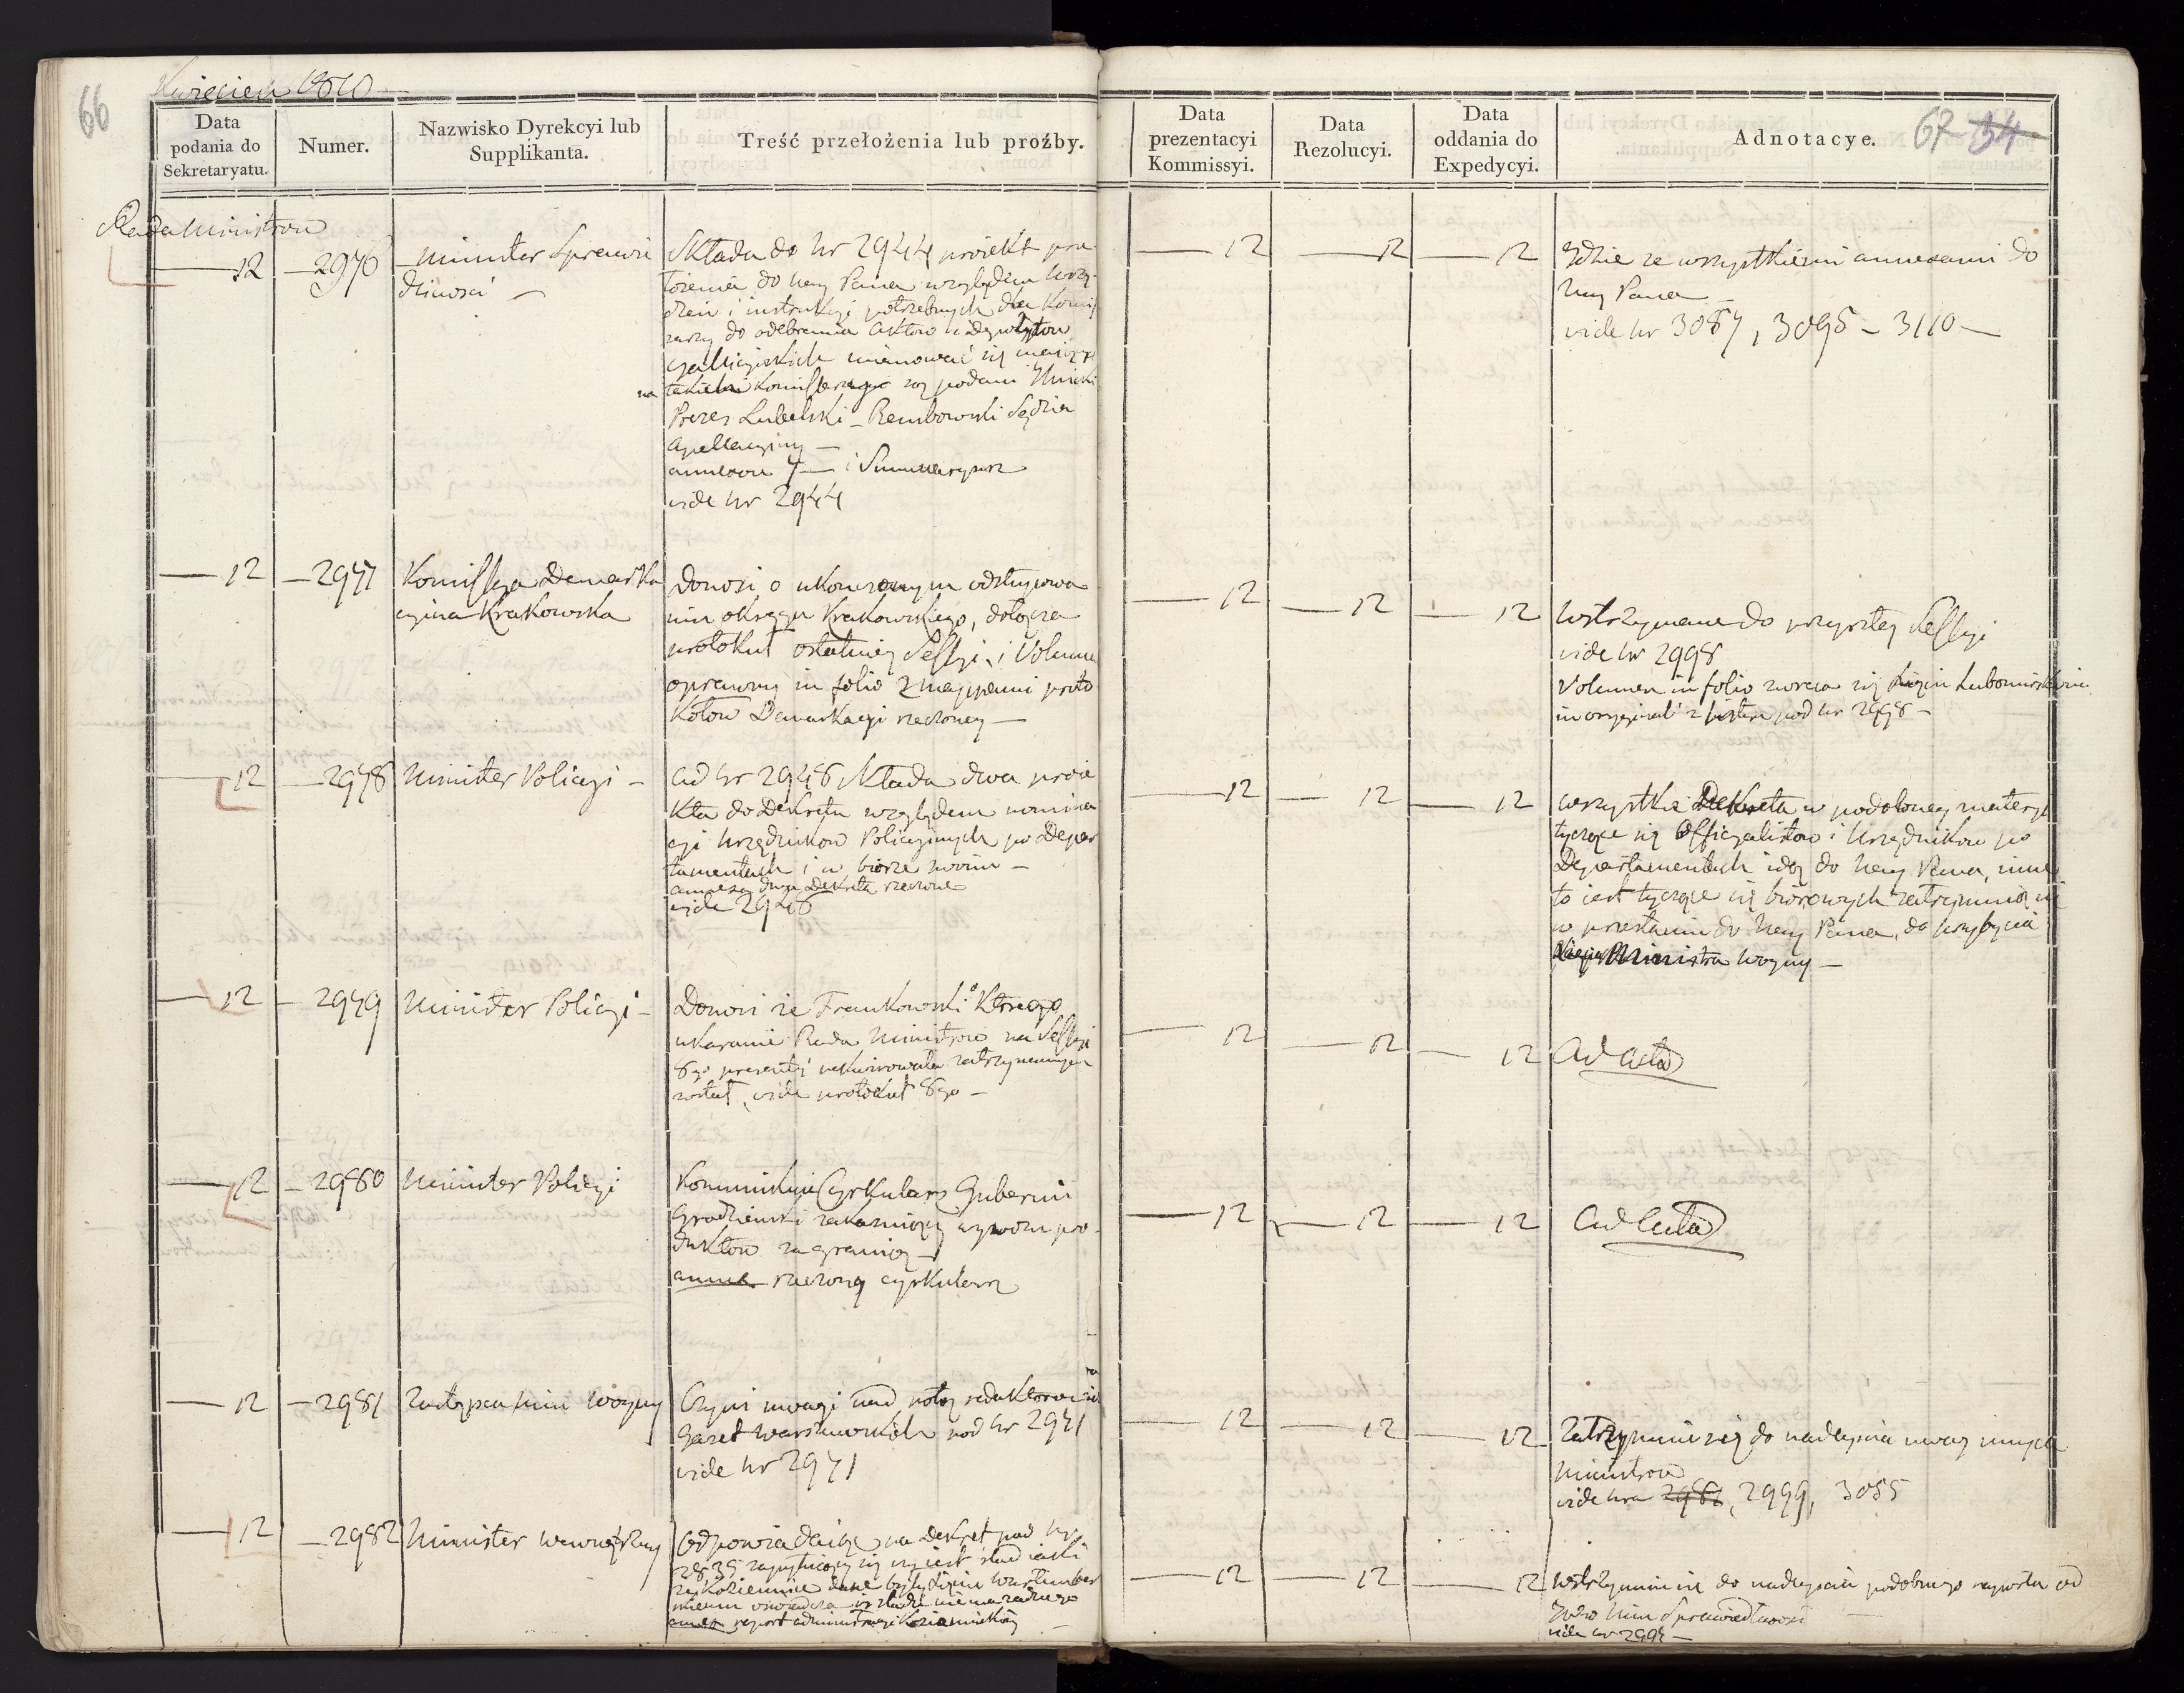 66
Kwiecień 1810
Data podania do Sekretaryatu.
Numer.
Nazwisko Dyrekcyi lub Supplikanta.
Treść przełożenia lub proźby.
Data prezentacyi Kommissyi.
Data Rezolucyi.
Data oddania do Expedycyi.
Adnotacye.
67 34
Rada Ministrow
12 — 2976 Minister Sprawie
dliwości —
Składa do Nr 2944 proiekt prze
łożenia do Nay Pana względem Urzą
dzeń i instrukcyi potrzebnych dla Komis
sarzy do odebrania aktow i depozytow
Gallicyiskich mianować się maiących
na takich Komissarzy są podani
Prezes Lubelski — Rembowski Sędzia
Apellacyiny —
annexow 7 — i Summaryusz
vide Nr 2944
12 — 12 — 12
Idzie ze wszystkiemi annexami do
Nay Pana —
vide Nr 3087, 3095 — 3110 —
12 — 2977 Komissya Demarka
cyina Krakowska
Donosi o ukonczonym odstąpowa
niu okręgu Krakowskiego, dołącza
protokuł ostatniey Sessyi, i Volumen
oprawny in folio z mappami proto
kołow Demarkacyi rzeczoney —
12 — 12 — 12
Wstrzymane do przyszłey Sessyi
vide Nr 2998
Volumen in folio zwraca się Lubomirskiemu
in originali z pod Nr 2998 —
12 — 2978 Minister Policyi —
Ad Nr 2948 składa dwa proie
kta do Dekretu względem nomina
cyi Urzędnikow Policyinych po Depar
tamentach i w biorze swoim —
annexa dwa Dekreta rzeczone
vide 2948
12 — 12 — 12
Wszystkie Dekreta w podobney materyi
tyczące się Officyalistow i Urzędnikow po
Departamentach idą do Nay Pana, inne
to iest tyczące się biorowych zatrzymuią się
w przesłaniu do Nay Pana, do przybycia
Ministra Woyny —
12 — 2979 Minister Policyi —
Donosi że Frankowski o którego
ukaranie Rada Ministrow na Sessyi
8go praesentis zatrzymanym
został, vide protokuł 8go —
12 — 12 — 12 Ad acta
12 — 2980 Minister Policyi
Kommunikuie Cyrkularz Gubernii
Grodzieński zakazuiący wywozu pro
duktow za granicę —
annex rzeczony cyrkularz
12 — 12 — 12 Ad acta
12 — 2981 Zastępca Min Woyny
Czyni uwagi nad notą redaktorow
Gazet Warszawskich pod Nr 2971
vide Nr 2971
12 — 12 — 12
Zatrzymuie się do nadeyścia uwag innych
Ministrow
vide Nra 2986, 2999, 3055
12 — 2982 Minister Wewnętrzny
Odpowiadaiąc na Dekret pod Nr
2835 zapytuiący się czy iest ślad iaki
że Kozienice dane były Xięciu Wirtember
skiemu oswiadcza iż śladu nie ma żadnego
annex raport administracyi Kozienickiey —
12 — 12 — 12
Wstrzymuie się do nadeyścia podobnego raportu od
JWo Min Sprawiedliwości —
vide Nr 2994 —